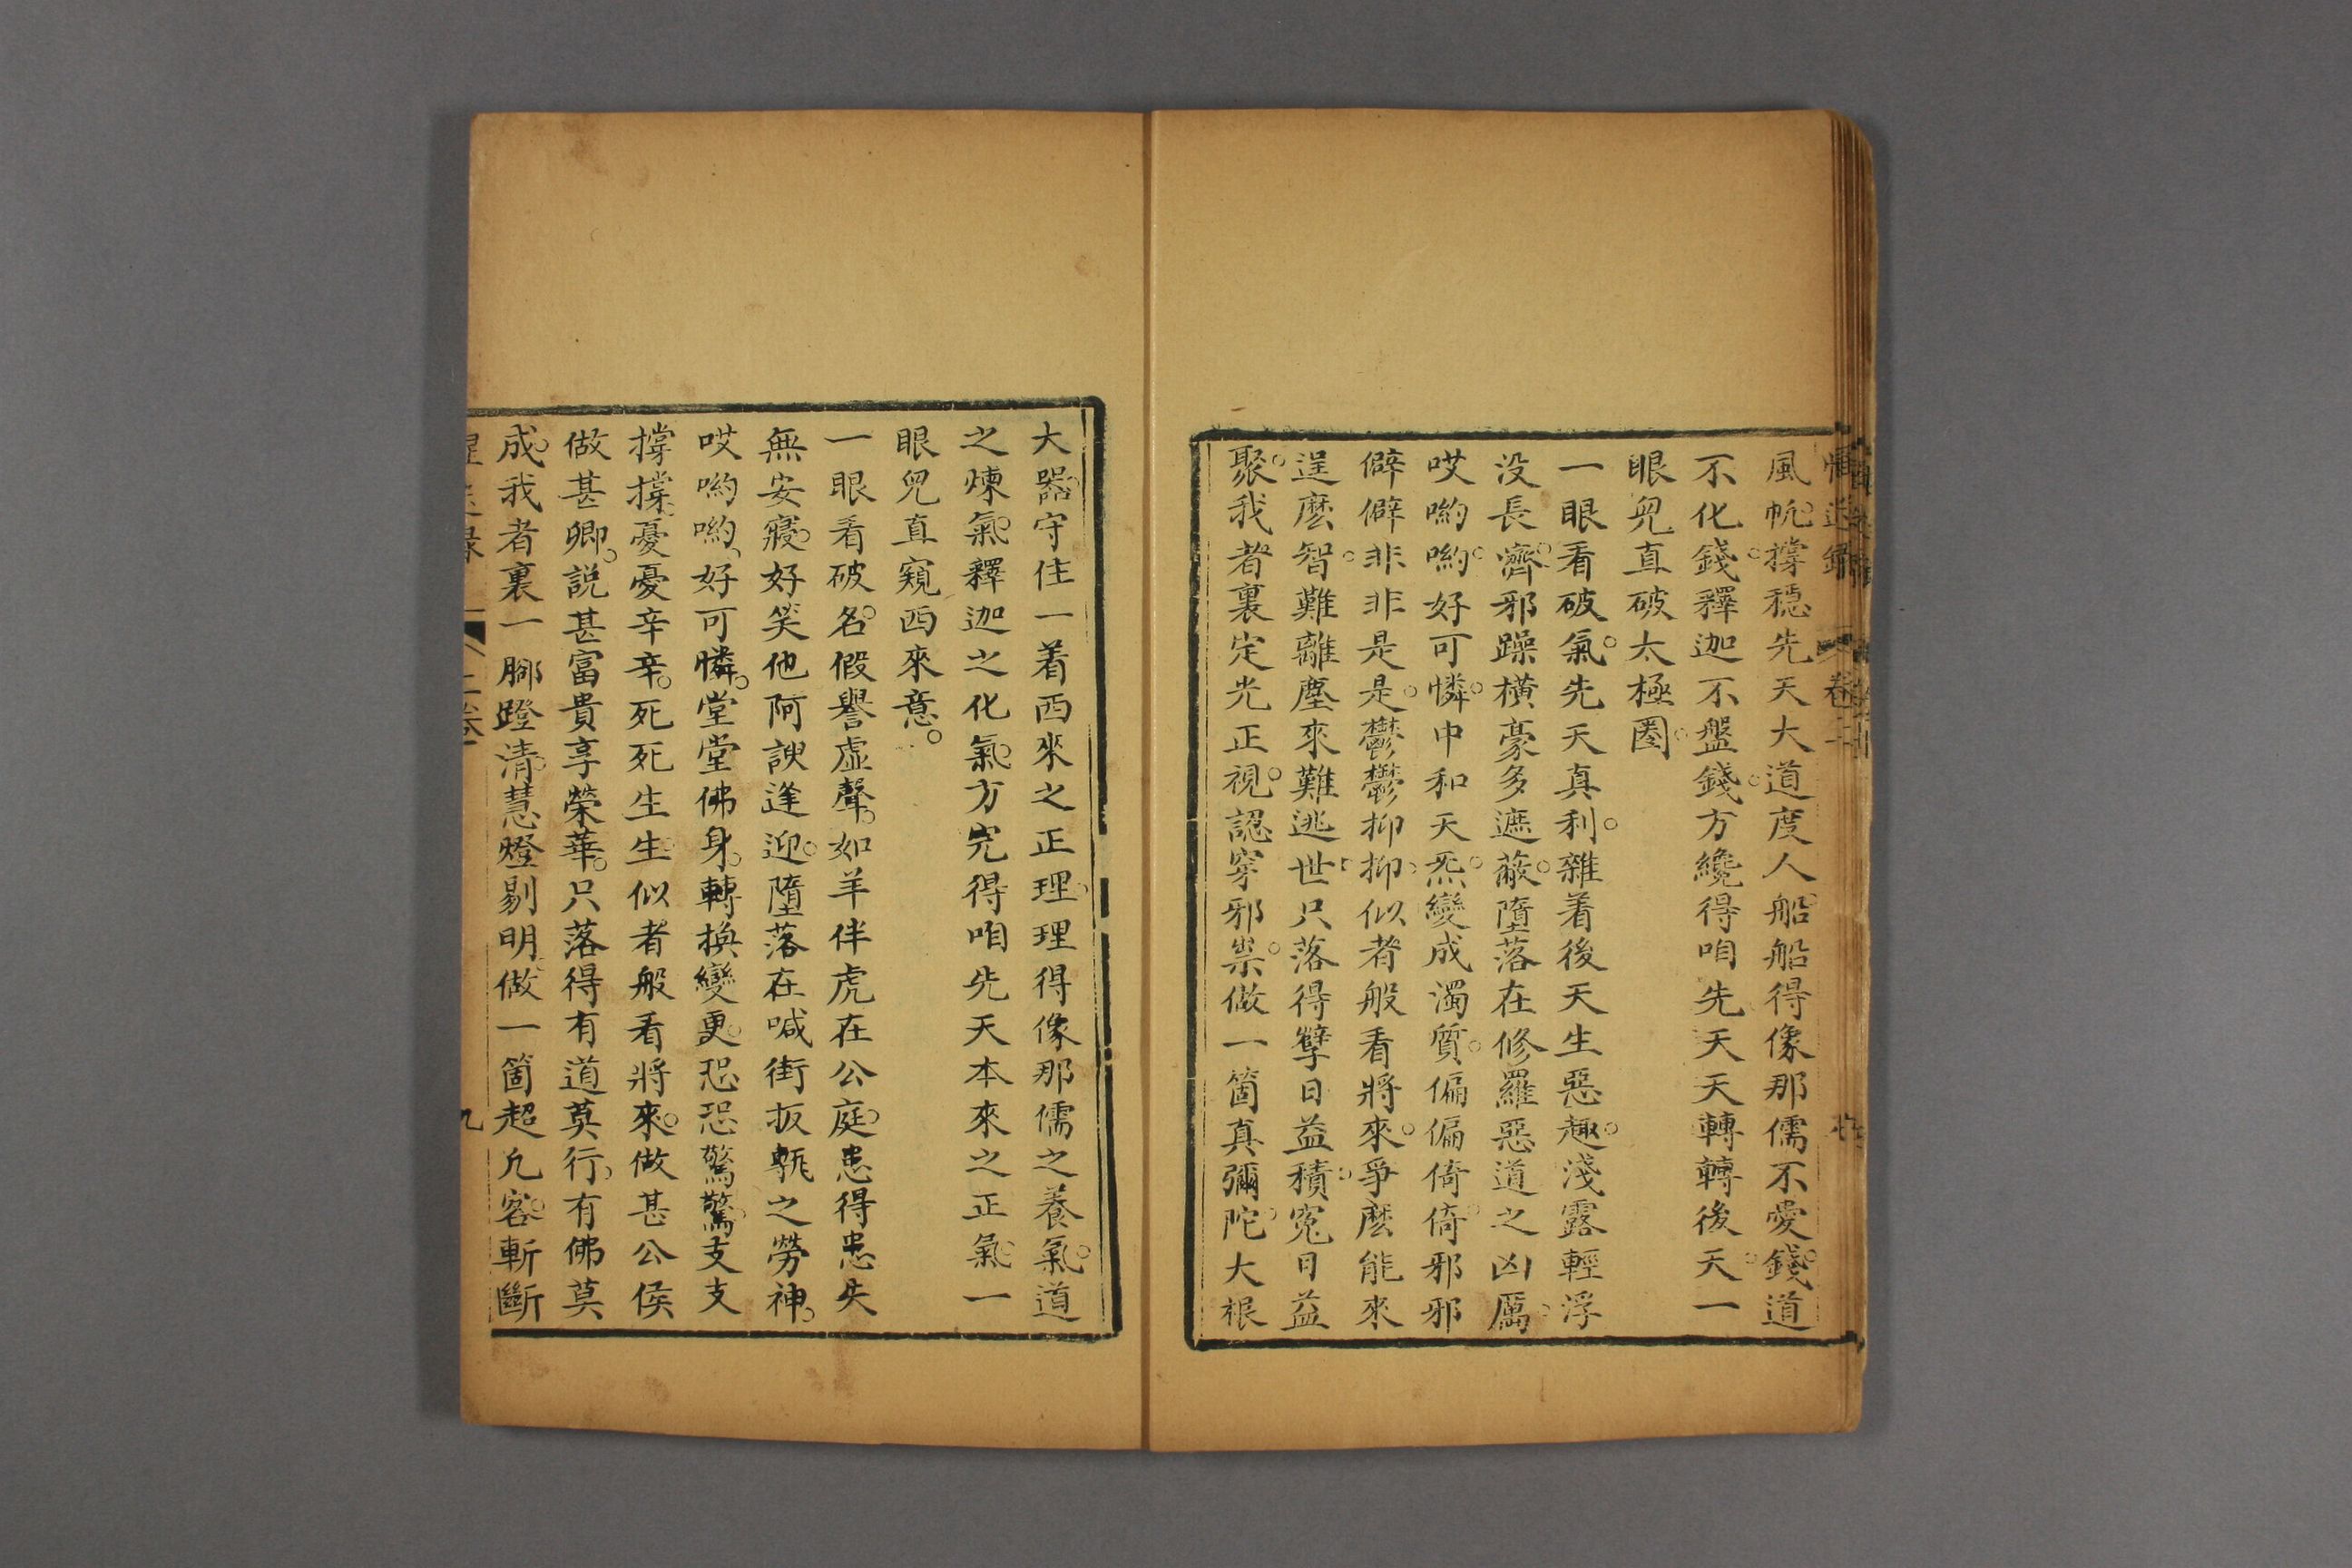 風帆。撐穩先天大道度人船。船得像那儒不愛錢。道
不化錢。釋迦不盤錢。方纔得咱先天天轉轉後天。一
眼兒直破太極圈。
一眼看破氣。先天真利。雜着後天生惡趣。淺露輕浮
没長濟。邪躁橫豪多遮蔽。墮落在修羅惡道之凶厲。
哎喲喲。好可憐。中和天炁。變成濁質。偏偏倚倚。邪邪
僻僻非非是是。鬱鬱抑抑。似者般看將來。爭麽能來
逞麽智。難離塵來難逃世。只落得孽日益積。冤日益
聚。我者裏定光正視。認穿邪祟。做一箇真彌陀。大根
大器。守住一着西來之正理。理得像那儒之養氣。道
之煉氣。釋迦之化氣。方完得咱先天本來之正氣。一
眼兒直窺西來意。
一眼看破名。假譽虛聲。如羊伴虎在公庭。患得患失
無安寢。好笑他阿諛逢迎。墮落在喊街扳軏之勞神。
哎喲喲。好可憐。堂堂佛身。轉換變更。恐恐驚驚。支支
撐撐。憂憂辛辛。死死生生。似者般看將來。做甚公侯
做甚卿。説甚富貴享榮華。只落得有道莫行。有佛莫
成。我者裏一腳蹬清。慧燈剔明。做一箇超凡客。斬斷
二卷
九